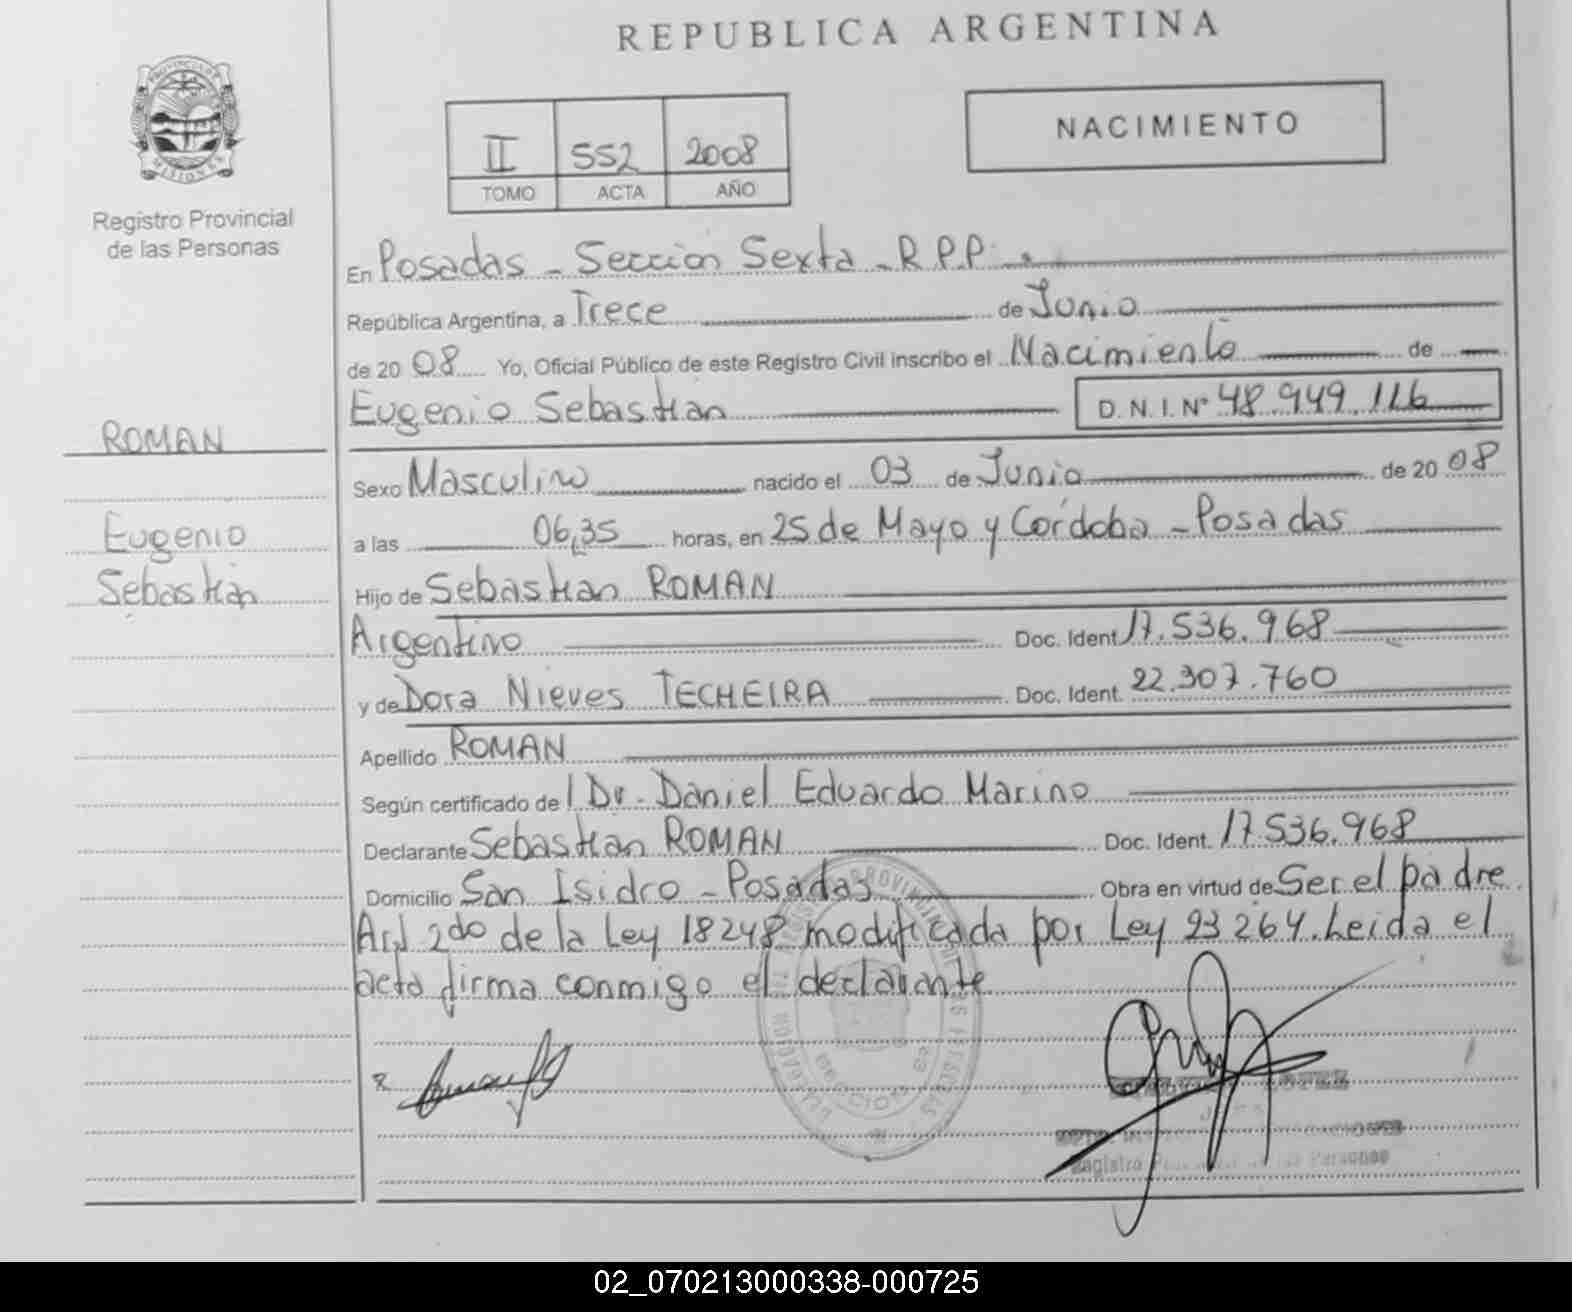 REPUBLICA ARGENTINA
PROVINCIA DE
MISIONES
Registro Provincial
de las Personas
II 552 2008
TOMO ACTA AÑO
NACIMIENTO
En Posadas - Sección Sexta - R.P.P.
República Argentina, a Trece de Junio
de 2008 Yo, Oficial Público de este Registro Civil inscribo el Nacimiento de
Eugenio Sebastian D.N.I. Nº 48.949.116
ROMAN
Eugenio
Sebastian
Sexo Masculino nacido el 03 de Junio de 2008
a las 06,35 horas, en 25 de Mayo y Córdoba - Posadas
Hijo de Sebastian ROMAN
Argentino Doc. Ident. 17.536.968
y de Dora Nieves TECHEIRA Doc. Ident. 22.307.760
Apellido ROMAN
Según certificado de l Dr. Daniel Eduardo Marino
Declarante Sebastian ROMAN Doc. Ident. 17.536.968
Domicilio San Isidro - Posadas Obra en virtud de Ser el padre
Art 2do de la Ley 18248 modificada por Ley 23264. Leida el
acta firma conmigo el declarante
Registro Personas
02_070213000338-000725